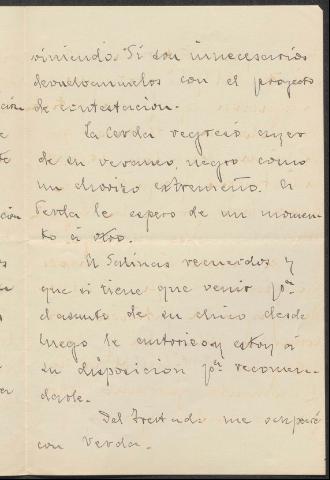 viniendo. Si son innecesarios
devuelvanmelos con el proyecto
de contestacion.
La Cerda regresó ayer
de su veraneo, negro como
un chorizo extremeño. A
Verda le espero de un momen-
to á otro.
A Salinas recuerdos y
que si tiene que venir pª
el asunto de su chico desde
luego le autorizo y estoy á
su disposicion pª recomen-
darle.
Del Tratado me ocuparé
con Verda.